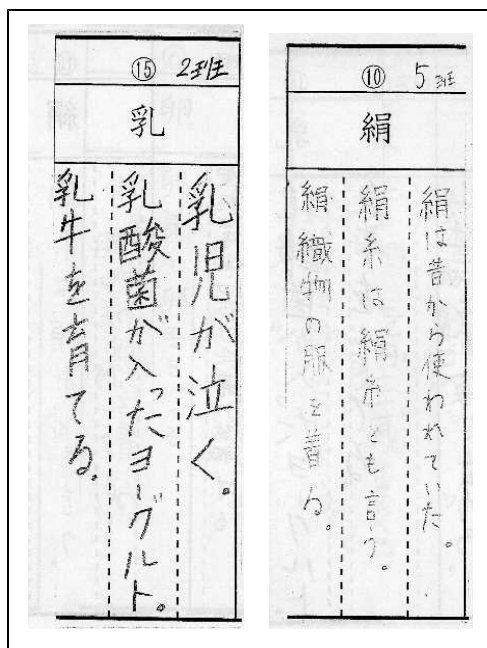 ⑮ 2班
乳
乳児が泣く。
乳酸菌が入ったヨーグルト。
乳牛を育てる。
⑩ 5班
絹
絹は昔から使われていた。
絹糸は絹糸とも言う。
絹織物の服を着る。